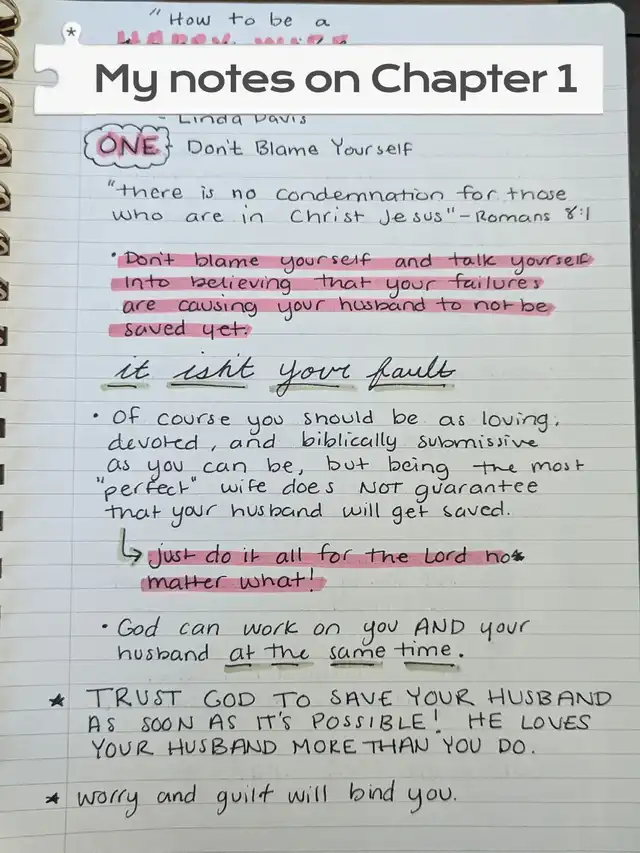 "How to be a
HAPPY WIFE
*
My notes on Chapter 1
- Linda Davis
ONE Don't Blame Yourself
"there is no condemnation for those
who are in Christ Jesus" - Romans 8:1
• Don't blame yourself and talk yourself
into believing that your failures
are causing your husband to not be
saved yet.
it isn't your fault
• Of course you should be as loving,
devoted, and biblically submissive
as you can be, but being the most
"perfect" wife does NOT guarantee
that your husband will get saved.
↳ just do it all for the Lord no
matter what!
• God can work on you AND your
husband at the same time.
★ TRUST GOD TO SAVE YOUR HUSBAND
AS SOON AS IT'S POSSIBLE! HE LOVES
YOUR HUSBAND MORE THAN YOU DO.
★ worry and guilt will bind you.